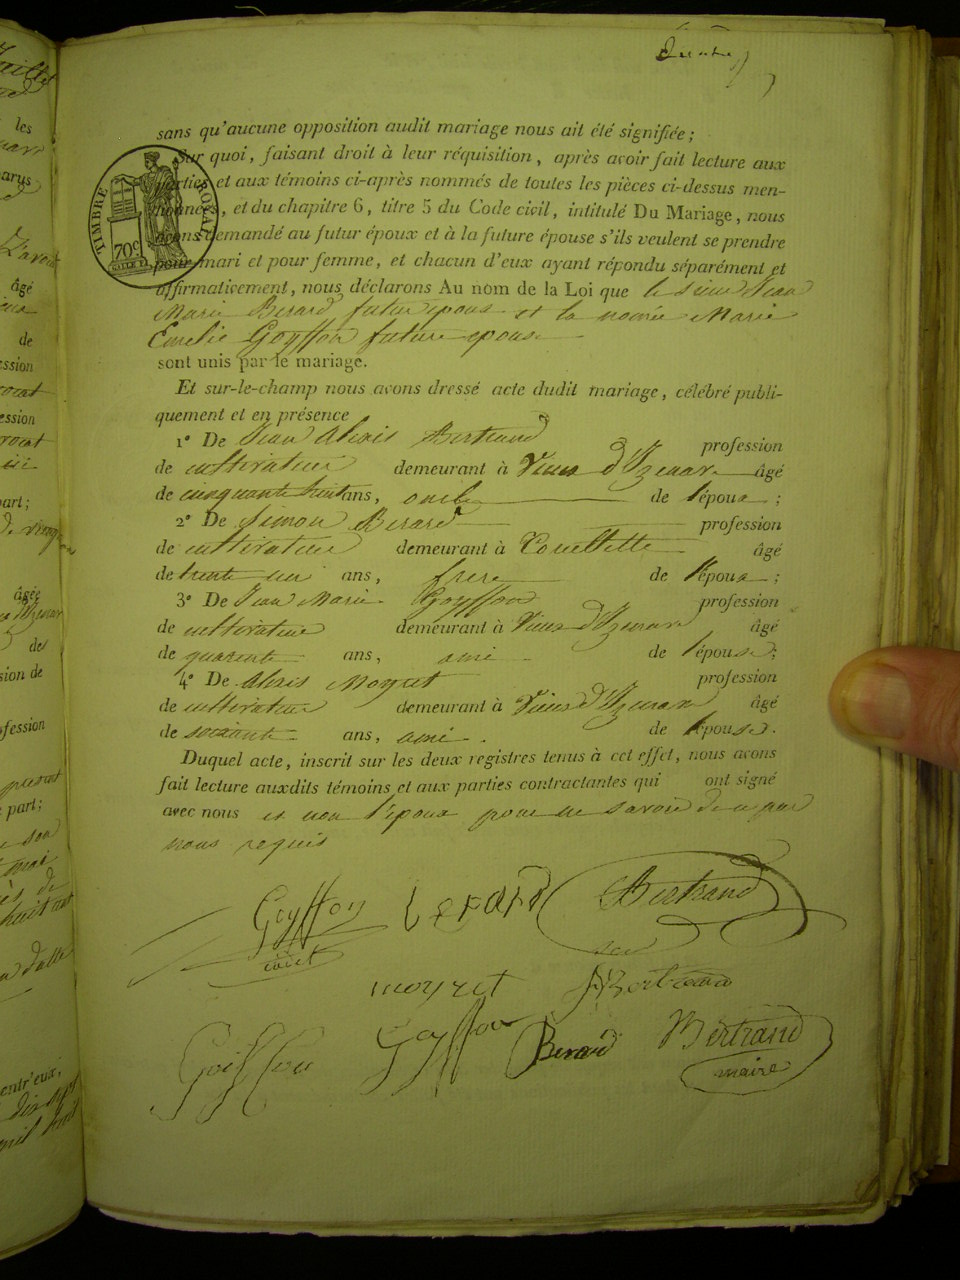 sans qu'aucune opposition audit mariage nous ait été signifiée ;
Sur quoi, faisant droit à leur réquisition, après avoir fait lecture aux
parties et aux témoins ci-après nommés de toutes les pièces ci-dessus men-
tionnées, et du chapitre 6, titre 5 du Code civil, intitulé Du Mariage, nous
avons demandé au futur époux et à la future épouse s'ils veulent se prendre
pour mari et pour femme, et chacun d'eux ayant répondu séparément et
affirmativement, nous déclarons Au nom de la Loi que le sieur Jean
Marie Berard futur epoux et la nomée Marie
Emelie Goyffon future epouse
sont unis par le mariage.
Et sur-le-champ nous avons dressé acte dudit mariage, célébré publi-
quement et en présence
1° De Jean Alexis Bertrand profession
de cultivateur demeurant à Vieux d'Izenave âgé
de cinquante huit ans, oncle de l'époux ;
2° De Simon Berard profession
de cultivateur demeurant à âgé
de trente un ans, frere de l'époux ;
3° De Jean Marie Goyffon profession
de cultivateur demeurant à Vieux d'Izenave âgé
de quarente ans, ami de l'épouse ;
4° De Alexis Moyret profession
de cultivateur demeurant à Vieux d'Izenave âgé
de soixante ans, ami de l'épouse.
Duquel acte, inscrit sur les deux registres tenus à cet effet, nous avons
fait lecture auxdits témoins et aux parties contractantes qui ont signé
avec nous et non l'epoux pour ne savoir de ce par
nous requis
TIMBRE ROYAL
70c
Goyffon Berard Bertrand
moyret Bertrand
Goiffon Goyffon Berard Bertrand
maire